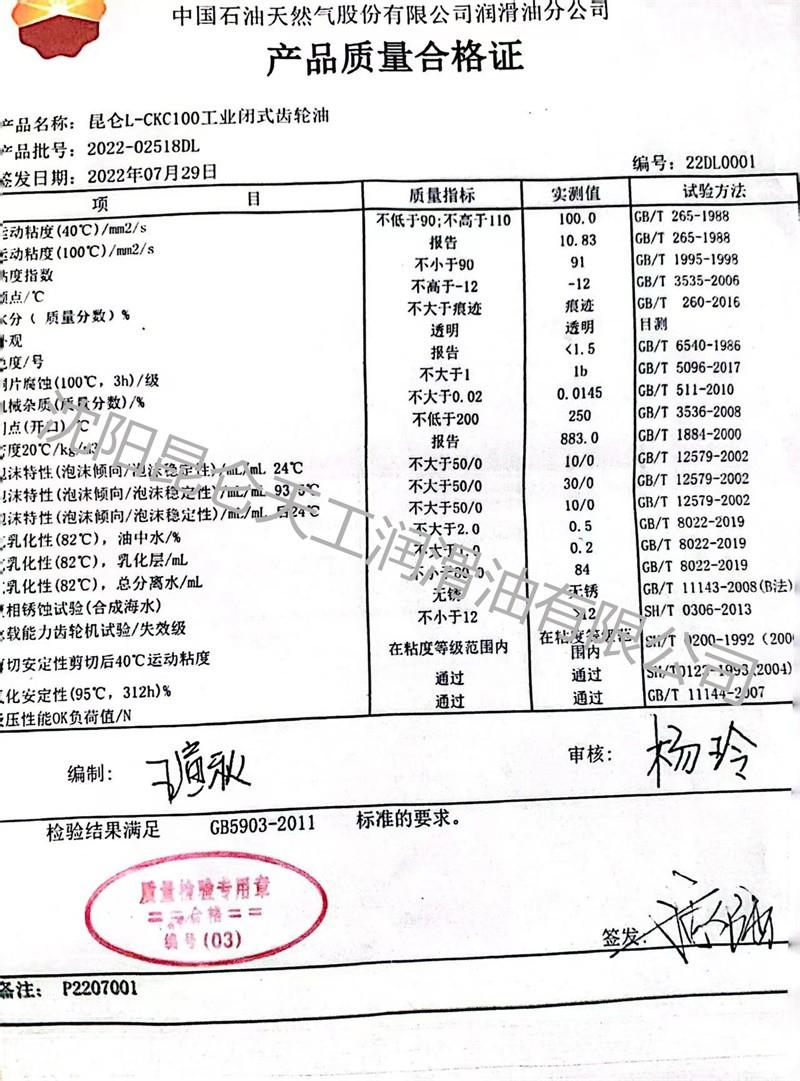 中国石油天然气股份有限公司润滑油分公司
产品质量合格证
产品名称： 昆仑L-CKC100工业闭式齿轮油
产品批号： 2022-02518DL
签发日期： 2022年07月29日 编号： 22DL0001
项 目 质量指标 实测值 试验方法
运动粘度(40℃)/mm2/s 不低于90;不高于110 100.0 GB/T 265-1988
运动粘度(100℃)/mm2/s 报告 10.83 GB/T 265-1988
粘度指数 不小于90 91 GB/T 1995-1998
倾点/℃ 不高于-12 -12 GB/T 3535-2006
水分（ 质量分数）% 不大于痕迹 痕迹 GB/T 260-2016
外观 透明 透明 目测
色度/号 报告 <1.5 GB/T 6540-1986
铜片腐蚀(100℃, 3h)/级 不大于1 1b GB/T 5096-2017
机械杂质(质量分数)/% 不大于0.02 0.0145 GB/T 511-2010
闪点(开口) ℃ 不低于200 250 GB/T 3536-2008
密度20℃/kg/m3 报告 883.0 GB/T 1884-2000
泡沫特性(泡沫倾向/泡沫稳定性)/mL/mL 24℃ 不大于50/0 10/0 GB/T 12579-2002
泡沫特性(泡沫倾向/泡沫稳定性)/mL/mL 93.5℃ 不大于50/0 30/0 GB/T 12579-2002
泡沫特性(泡沫倾向/泡沫稳定性)/mL/mL 后24℃ 不大于50/0 10/0 GB/T 12579-2002
乳化性(82℃), 油中水/% 不大于2.0 0.5 GB/T 8022-2019
乳化性(82℃), 乳化层/mL 不大于 .0 0.2 GB/T 8022-2019
乳化性(82℃), 总分离水/mL 不小于80.0 84 GB/T 8022-2019
液相锈蚀试验(合成海水) 无锈 无锈 GB/T 11143-2008(B法)
承载能力齿轮机试验/失效级 不小于12 >12 SH/T 0306-2013
剪切安定性剪切后40℃运动粘度 在粘度等级范围内 在粘度等级范围内 SH/T 0200-1992 (200
氧化安定性(95℃, 312h)% 通过 通过 SH/T0127-1993(2004)
挤压性能OK负荷值/N 通过 通过 GB/T 11144-2007
沈阳昆仑天工润滑油有限公司
编制： 审核： 杨玲
检验结果满足 GB5903-2011 标准的要求。
质量检验专用章
==合格==
编号(03)
签发：
备注： P2207001